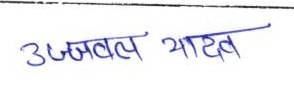 उज्जवल यादव